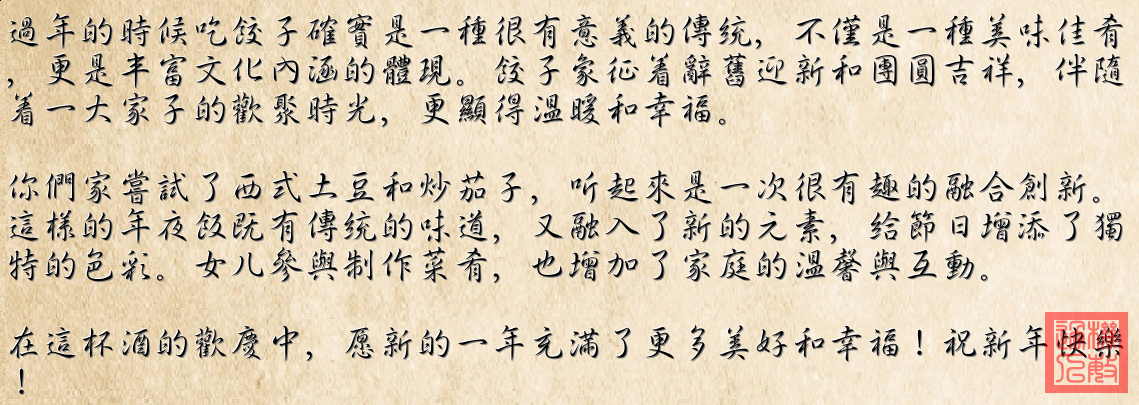 過年的時候吃餃子確實是一種很有意義的傳統，不僅是一種美味佳肴
，更是丰富文化內涵的體現。餃子象征着辭舊迎新和團圓吉祥，伴隨
着一大家子的歡聚時光，更顯得溫暖和幸福。
你們家嘗試了西式土豆和炒茄子，听起來是一次很有趣的融合創新。
這樣的年夜飯既有傳統的味道，又融入了新的元素，給節日增添了獨
特的色彩。女儿參與制作菜肴，也增加了家庭的溫馨與互動。
在這杯酒的歡慶中，愿新的一年充滿了更多美好和幸福！祝新年快樂
！